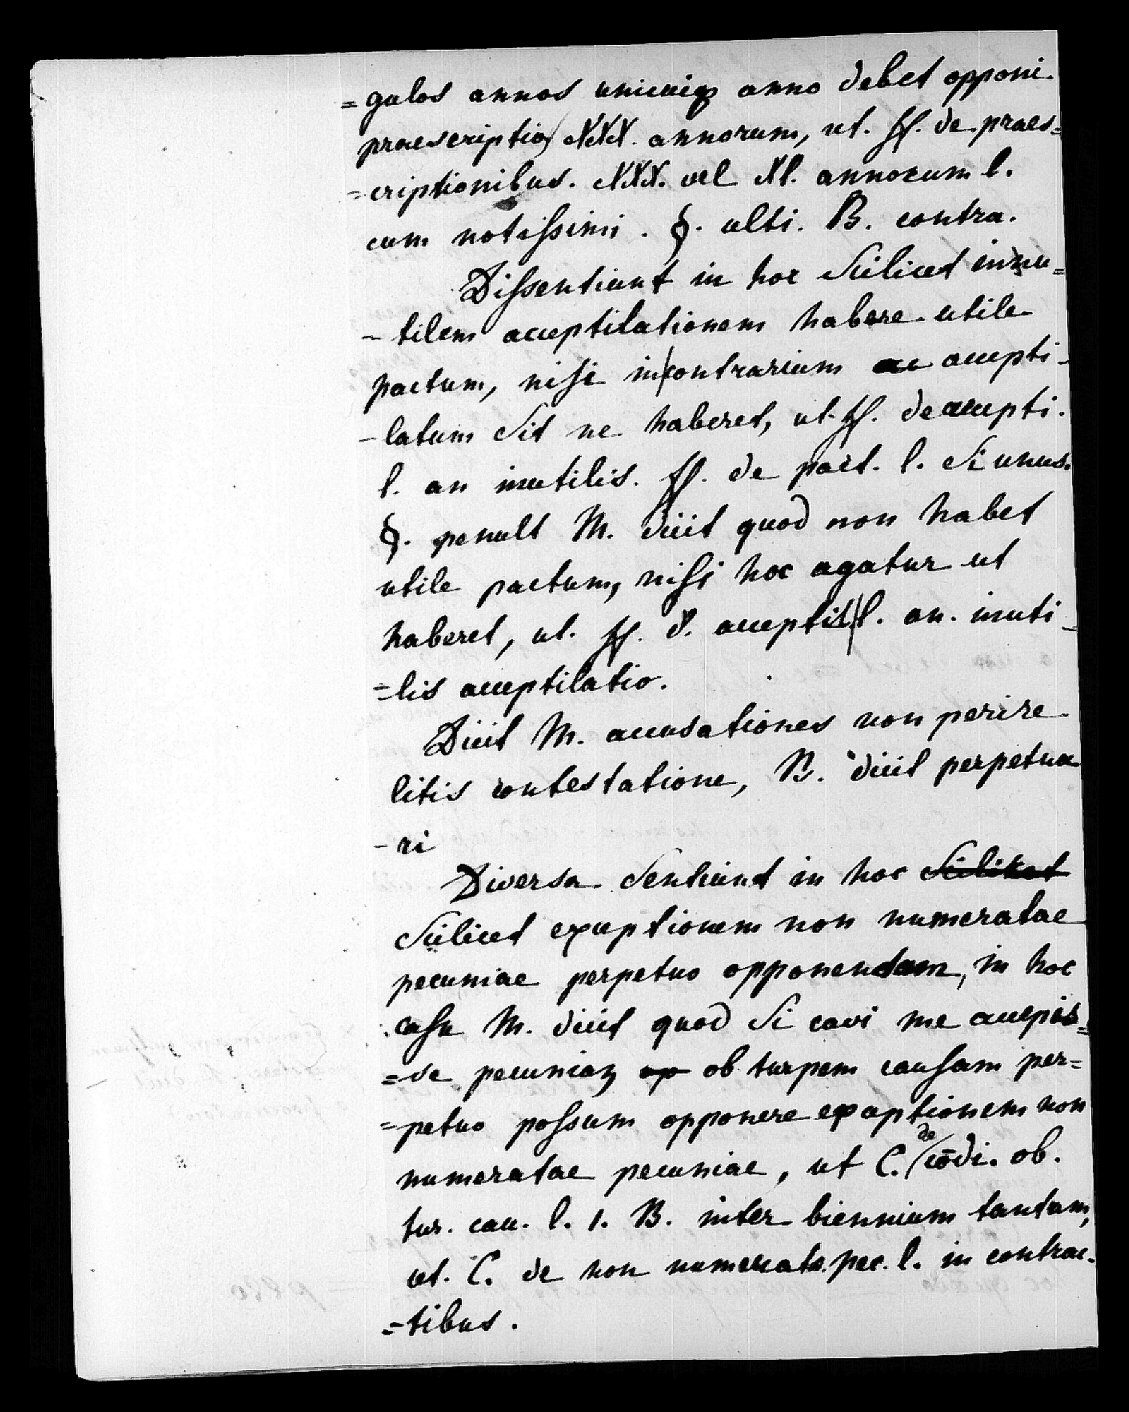 =gulos annos unicuiq anno debet opponi
praescriptio XXX. annorum, ut. ff. de praes=
=criptionibus. XXX. vel Xl. annorum l.
cum notissimi. §. ulti. B. contra.
Dissentiunt in hoc scilicet innu=
-tilem acceptilationem habere utile
pactum, nisi in contrarium ac accepti-
-latum sit ne haberet, ut. ff. de accepti.
l. an inutilis. ff. de pact. l. si unus.
§. penult M. dicit quod non habet
utile pactum, nisi hoc agatur ut
haberet, ut. ff. d. acceptil l. an. inuti-
=lis acceptilatio.
Dicit M. accusationes non perire
litis contestatione, B. dicit perpetua
-ri
Diversa sentiunt in hoc scilicet
scilicet exceptionem non numeratae
pecuniae perpetuo opponendam, in hoc
casu M. dicit quod si cavi me accepis=
=se pecuniaz op ob turpem causam per=
=petuo possum opponere exceptionem non
numeratae pecuniae, ut C. de cōdi. ob.
tur. cau. l. 1. B. inter biennium tantum,
ut. C. de non numerata pec. l. in contrac-
=tibus.